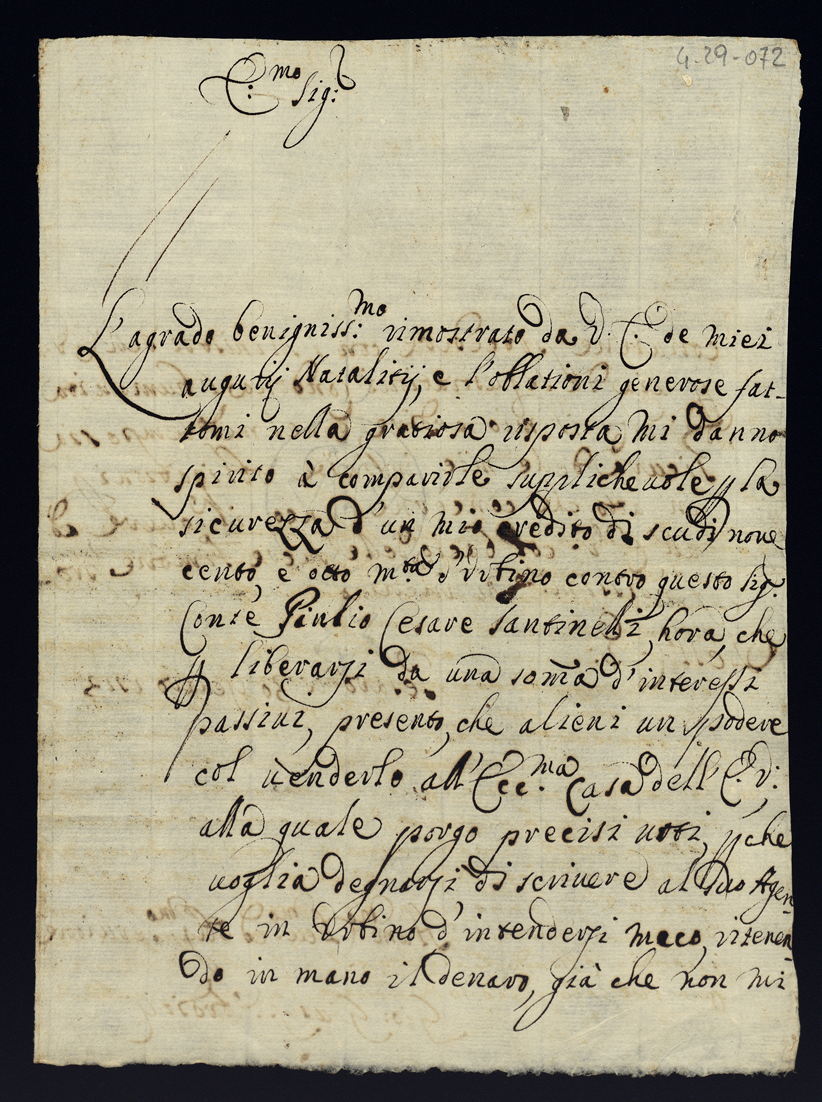 4-29-072
E:mo Sig:r
L'agrado benigniss:mo rimostrato da V. E. de miei
augurij Natalitij, e l'oblationi generose fat-
tomi nella gratiosa risposta mi danno
spirito à comparirle supplicheuole p la
sicurezza d'un mio credito di scudi noue
cento, e otto m.ta d'Urbino contro questo Sig.
Conte Giulio Cesare Santinelli, hora, che
p liberarsi da una soma d'interessi
passiui, presento, che alieni un podere
col uenderlo all'Ecc:ma Casa dell'E. V:
alla quale porgo precisi uoti, p che
uoglia degnarsi di scriuere al suo Agen-
te in Urbino d'intendersi meco, ritenen-
do in mano il denaro, già che non mi